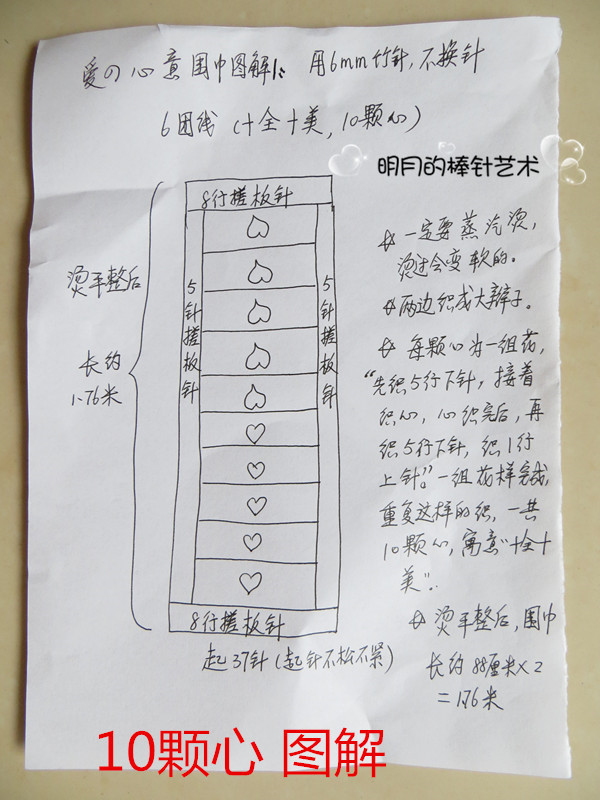 爱の心意围巾图解1: 用6mm竹针,不换针
6团线(十全十美,10颗心)
明月的棒针艺术
8行搓板针
烫平整后
长约
1.76米
5针搓板针
5针搓板针
8行搓板针
起37针(起针不松不紧)
一定要蒸汽烫,
烫过会变软的。
两边织成大辫子。
每颗心为一组花,
“先织5行下针,接着
织心,心织完后,再
织5行下针,织1行
上针”。一组花样完成,
重复这样的织,一共
10颗心,寓意“十全十
美”。
烫平整后,围巾
长约88厘米×2
=1.76米
10颗心 图解